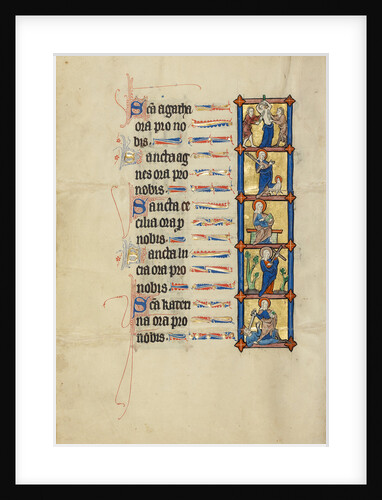 Scā agatha
ora pro no
bis.
Sancta ag
nes ora pro
nobis
Sancta ce
cilia ora p
nobis
Sancta lu
cia ora pro
nobis
Scā kateri
na ora pro
nobis